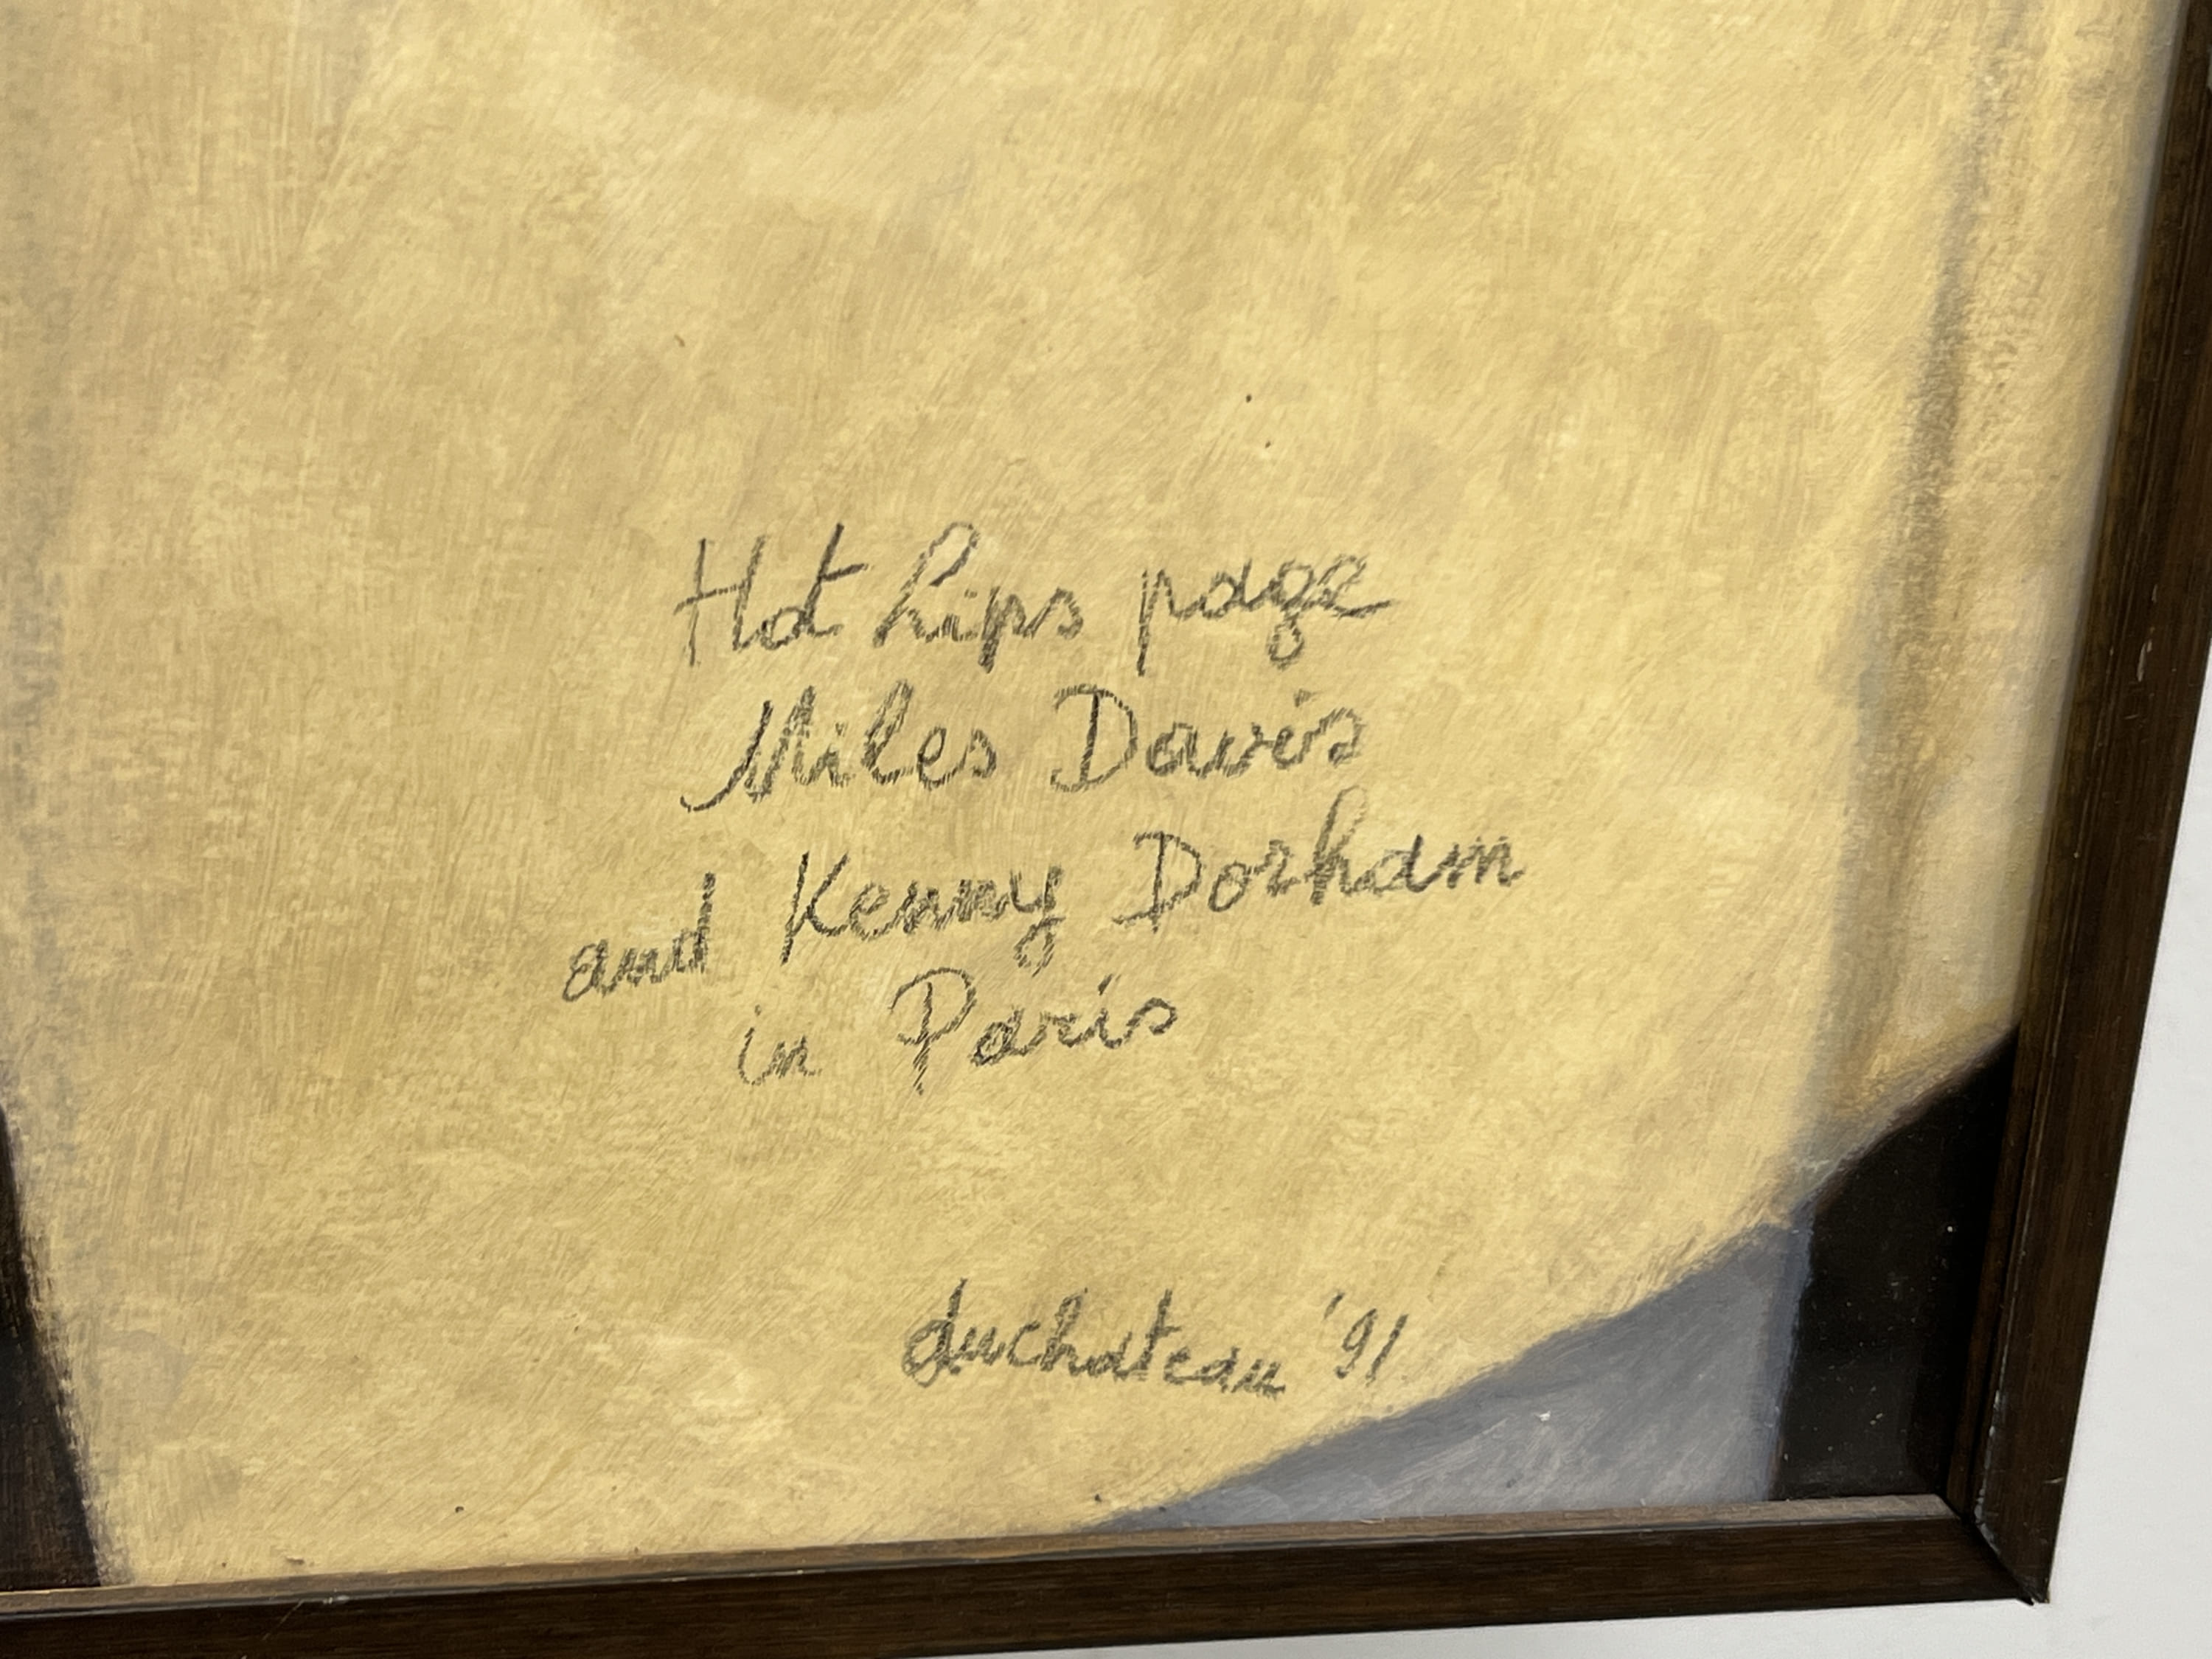 Hot Lips page
Miles Davis
and Kenny Dorham
in Paris
duchateau '91